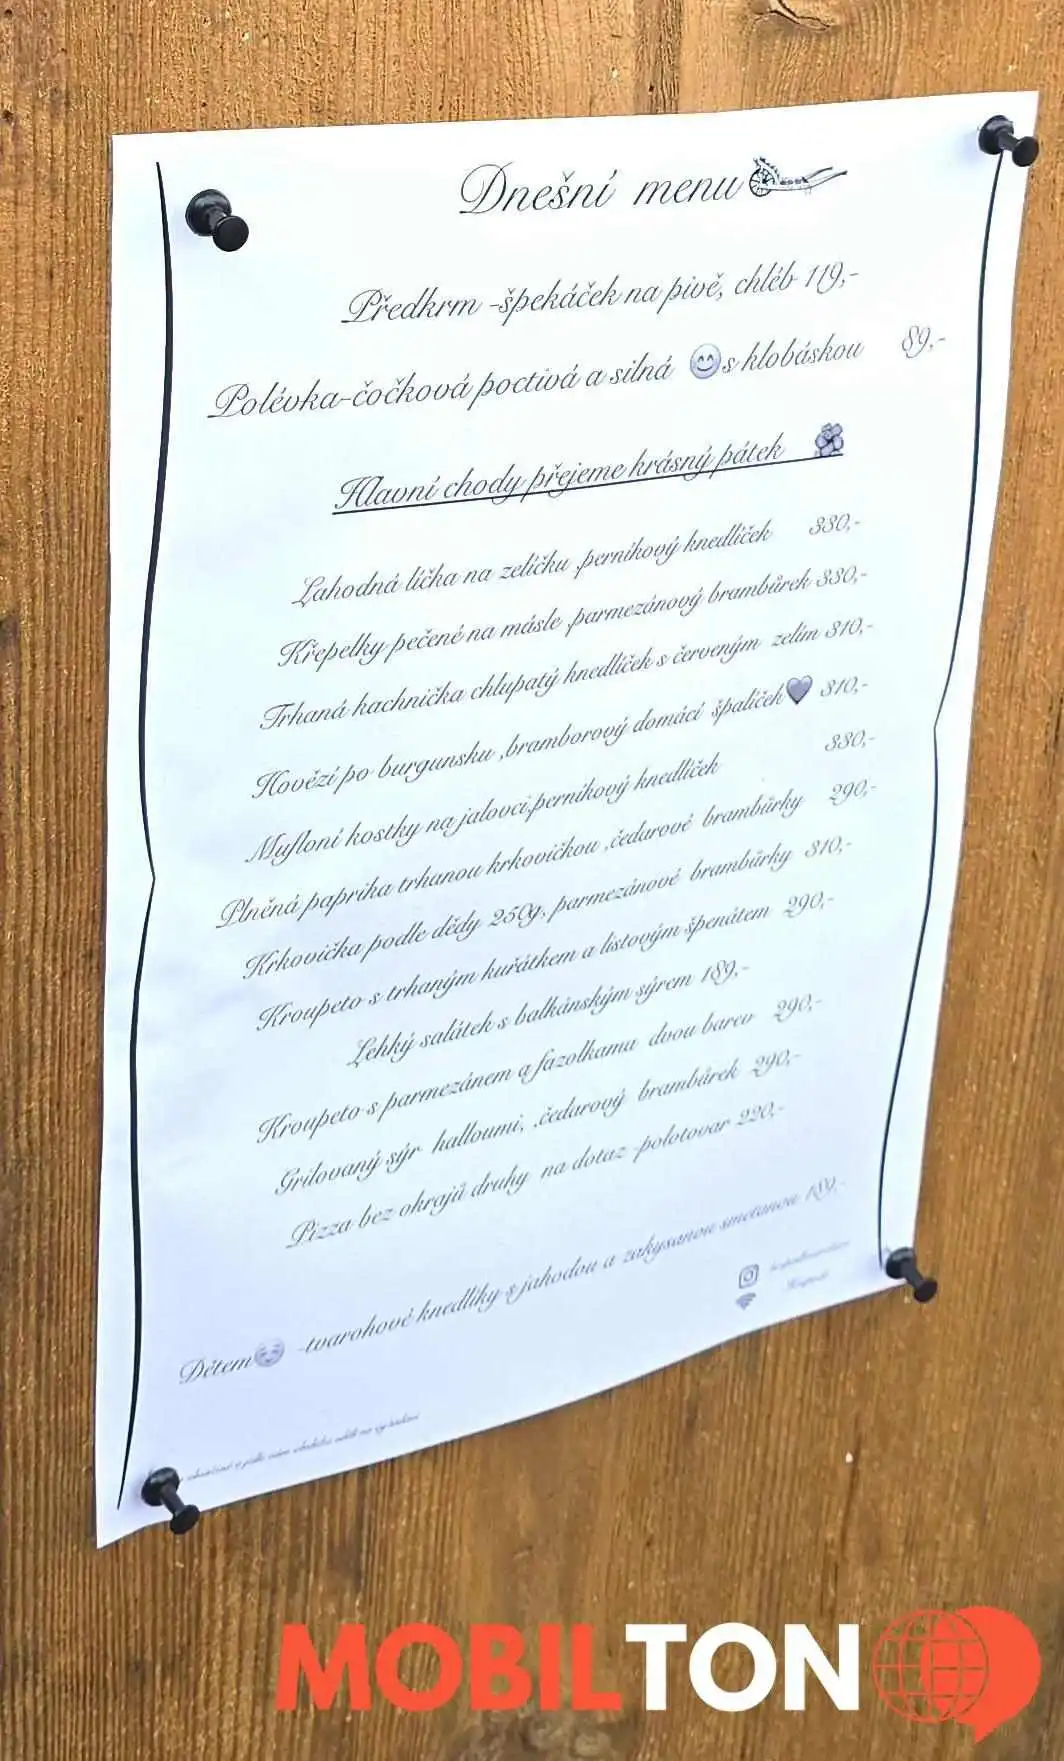 Dnešní menu
Předkrm -špekáček na pivě, chléb 119,-
Polévka-čočková poctivá a silná 😊s klobáskou 89,-
Hlavní chody přejeme krásný pátek
Lahodná líčka na zelíčku ,perníkový knedlíček 330,-
Křepelky pečené na másle ,parmezánový brambůrek 330,-
Trhaná kachnička chlupatý knedlíček s červeným zelím 310,-
Hovězí po burgunsku ,bramborový domácí špalíček🖤 310,-
Mufloní kostky na jalovci,perníkový knedlíček 330,-
Plněná paprika trhanou krkovičkou ,čedarové brambůrky 290,-
Krkovička podle dědy 250g, parmezánové brambůrky 310,-
Kroupeto s trhaným kuřátkem a listovým špenátem 290,-
Lehký salátek s balkánským sýrem 189,-
Kroupeto s parmezánem a fazolkama dvou barev 290,-
Grilovaný sýr halloumi, ,čedarový brambůrek 290,-
Pizza bez okrajů druhy na dotaz -polotovar 220,-
Dětem😊 -tvarohové knedlíky s jahodou a zakysanou smetanou 189,-
MOBIL TON